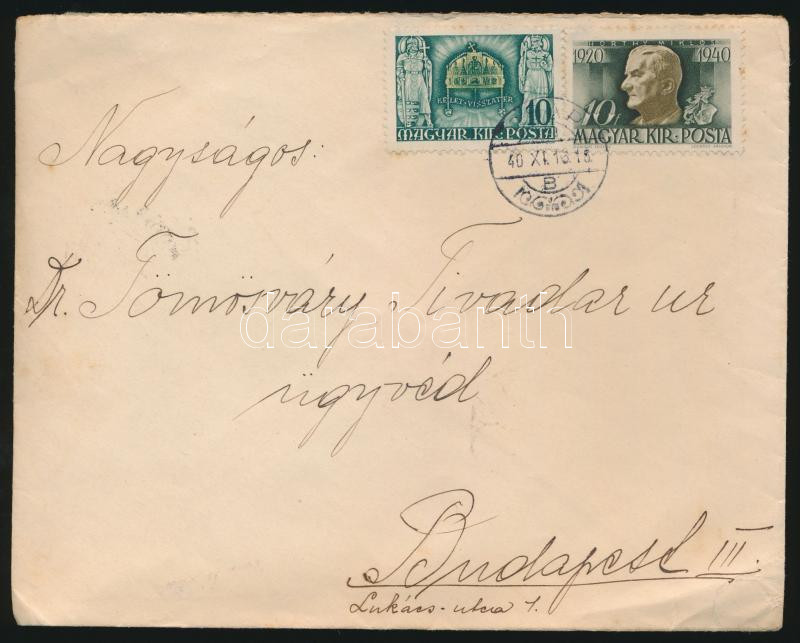 KELET·VISSZATÉR
10
MAGYAR·KIR·POSTA
HORTHY MIKLÓS
1920 1940
10f
MAGYAR·KIR·POSTA
40 XI.16.18
B
Nagyságos:
Dr. Tömösváry Tivadar ur
ügyvéd
Budapest III.
Lukács-utca 1.
darabanth